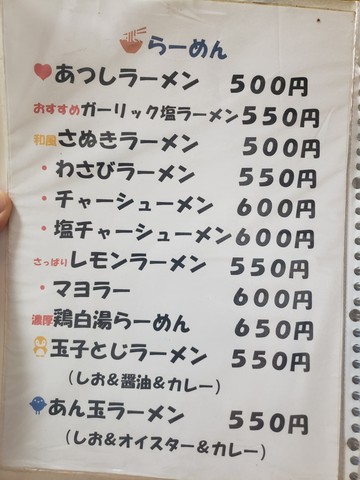 らーめん
あつしラーメン 500円
おすすめガーリック塩ラーメン550円
和風さぬきラーメン 500円
・わさびラーメン 550円
・チャーシューメン 600円
・塩チャーシューメン600円
さっぱりレモンラーメン 550円
・マヨラー 600円
濃厚鶏白湯らーめん 650円
玉子とじラーメン 550円
（しお&醤油&カレー）
あん玉ラーメン 550円
（しお&オイスター&カレー）